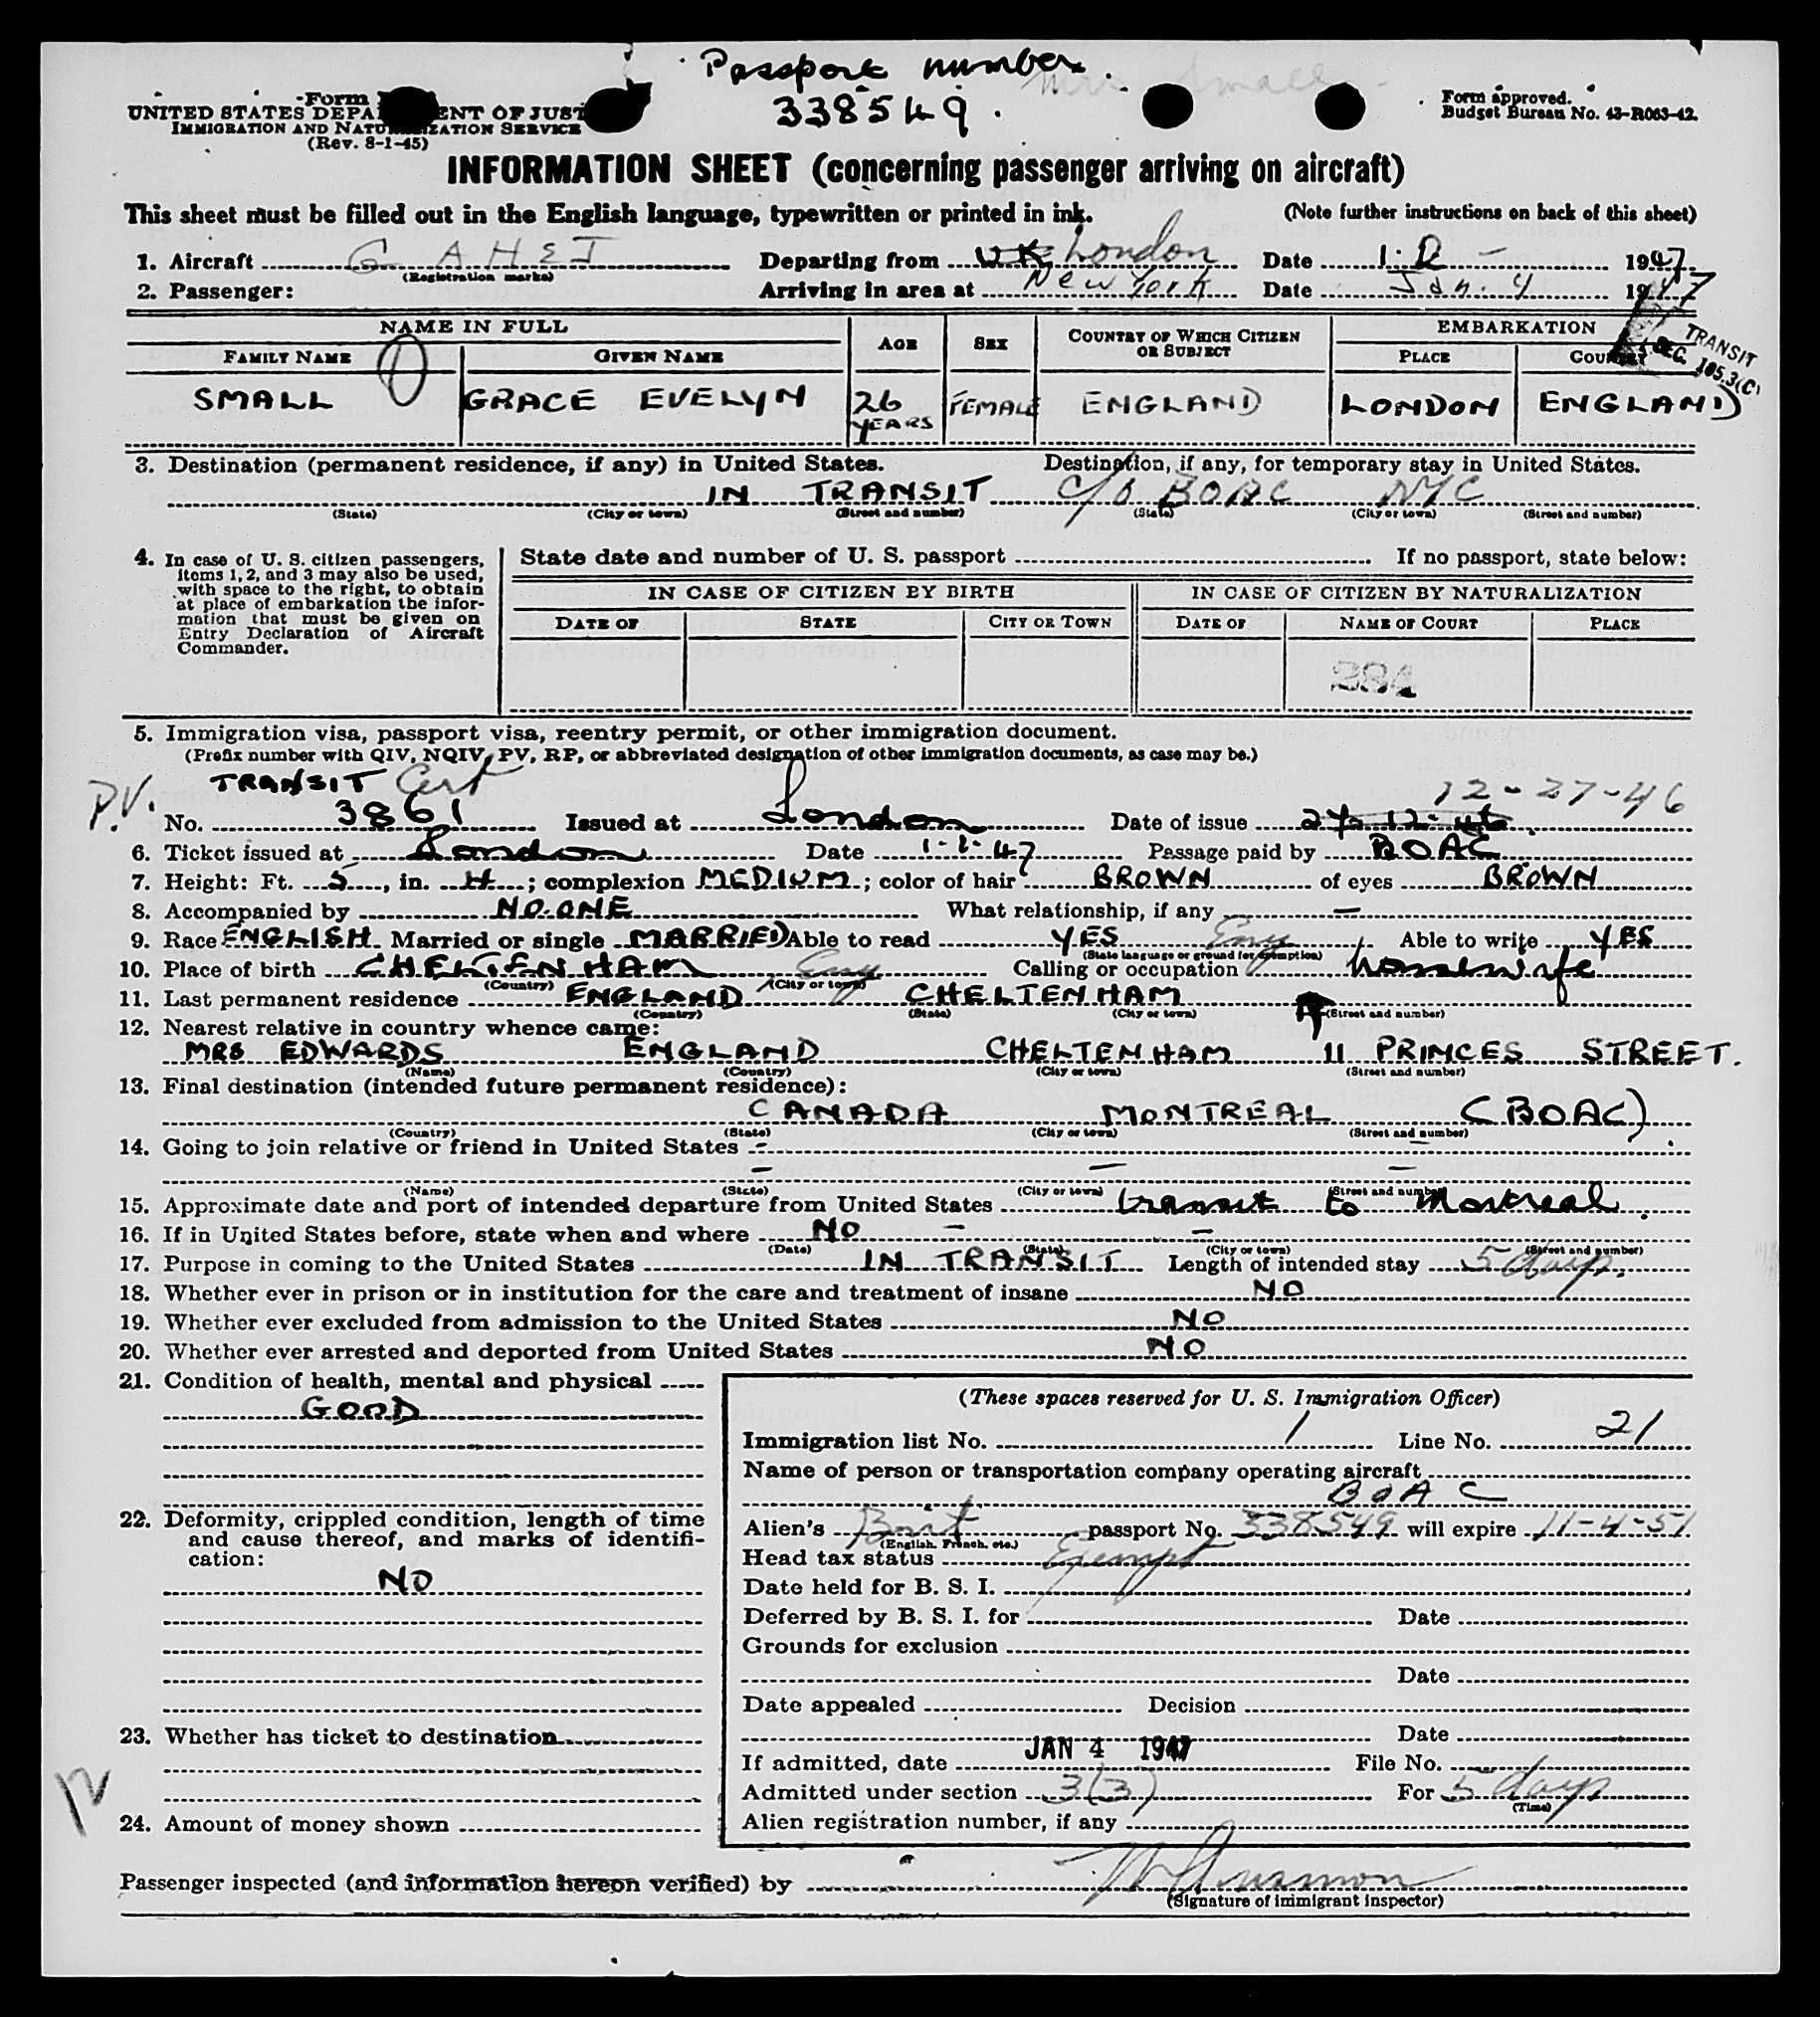 Passport number.
Mrs Small
338549.
Form
UNITED STATES DEPA ENT OF JUST
IMMIGRATION AND NATURALIZATION SERVICE
(Rev. 8-1-45)
Form approved.
Budget Bureau No. 43-R063-42.
INFORMATION SHEET (concerning passenger arriving on aircraft)
This sheet must be filled out in the English language, typewritten or printed in ink. (Note further instructions on back of this sheet)
1. Aircraft G AHEJ Departing from UK London Date 1. 2 - 1947
(Registration marks)
2. Passenger: Arriving in area at New York Date Jan. 4 1947
NAME IN FULL AGE SEX COUNTRY OF WHICH CITIZEN OR SUBJECT EMBARKATION
FAMILY NAME GIVEN NAME PLACE COUNTRY
TRANSIT
SEC. 105.3(C)
SMALL GRACE EVELYN 26 YEARS FEMALE ENGLAND LONDON ENGLAND
3. Destination (permanent residence, if any) in United States. Destination, if any, for temporary stay in United States.
IN TRANSIT c/o BOAC NYC
(State) (City or town) (Street and number) (State) (City or town) (Street and number)
4. In case of U. S. citizen passengers, items 1, 2, and 3 may also be used, with space to the right, to obtain at place of embarkation the information that must be given on Entry Declaration of Aircraft Commander.
State date and number of U. S. passport If no passport, state below:
IN CASE OF CITIZEN BY BIRTH IN CASE OF CITIZEN BY NATURALIZATION
DATE OF STATE CITY OR TOWN DATE OF NAME OF COURT PLACE
284
5. Immigration visa, passport visa, reentry permit, or other immigration document.
(Prefix number with QIV, NQIV, PV, RP, or abbreviated designation of other immigration documents, as case may be.)
P.V. TRANSIT Cert 12-27-46
No. 3861 Issued at London Date of issue 27-12-46
6. Ticket issued at London Date 1-1-47 Passage paid by BOAC
7. Height: Ft. 5, in. 4; complexion MEDIUM; color of hair BROWN of eyes BROWN
8. Accompanied by NO ONE What relationship, if any -
9. Race ENGLISH Married or single MARRIED Able to read YES Eng Able to write YES
(State language or ground for exemption)
10. Place of birth CHELTENHAM Eng Calling or occupation housewife
(Country) (City or town)
11. Last permanent residence ENGLAND CHELTENHAM
(Country) (State) (City or town) (Street and number)
12. Nearest relative in country whence came:
MRS EDWARDS ENGLAND CHELTENHAM 11 PRINCES STREET.
(Name) (Country) (City or town) (Street and number)
13. Final destination (intended future permanent residence):
CANADA MONTREAL (BOAC)
(Country) (State) (City or town) (Street and number)
14. Going to join relative or friend in United States -
- - -
(Name) (State) (City or town) (Street and number)
15. Approximate date and port of intended departure from United States transit to Montreal.
16. If in United States before, state when and where NO - -
(Date) (State) (City or town) (Street and number)
17. Purpose in coming to the United States IN TRANSIT Length of intended stay 5 days.
18. Whether ever in prison or in institution for the care and treatment of insane NO
19. Whether ever excluded from admission to the United States NO
20. Whether ever arrested and deported from United States NO
21. Condition of health, mental and physical
GOOD
22. Deformity, crippled condition, length of time and cause thereof, and marks of identification:
NO
23. Whether has ticket to destination
24. Amount of money shown
(These spaces reserved for U. S. Immigration Officer)
Immigration list No. 1 Line No. 21
Name of person or transportation company operating aircraft
BOAC
Alien's Brit passport No. 338549 will expire 11-4-51
(English, French, etc.)
Head tax status Exempt
Date held for B. S. I.
Deferred by B. S. I. for Date
Grounds for exclusion
Date
Date appealed Decision
Date
If admitted, date JAN 4 1947 File No.
Admitted under section 3(3) For 5 days
(Time)
Alien registration number, if any
Passenger inspected (and information hereon verified) by
(Signature of immigrant inspector)